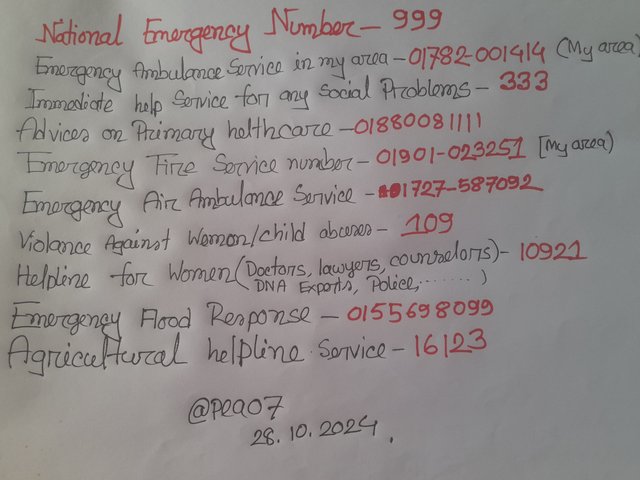 National Emergency Number - 999
Emergency Ambulance Service in my area - 01782-001414 (My area)
Immediate help Service for any Social Problems - 333
Advices on Primary helthcare - 01880081111
Emergency Fire Service number - 01901-023251 [My area)
Emergency Air Ambulance Service - 01727-587092
Violance Against Women/child abuses - 109
Helpline for Women (Doctors, lawyers, counselors) - 10921
DNA Exports, Police, ........)
Emergency Flood Response - 0155698099
Agricultural helpline Service - 16123
@Pea07
28.10.2024.